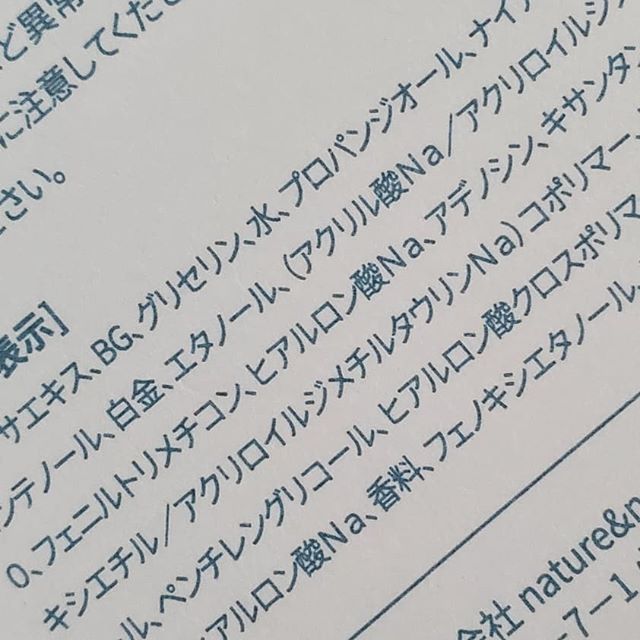 ど異常
に注意してくださ
さい。
表示]
サエキス、BG、グリセリン、水、プロパンジオール、ナイア
ンテノール、白金、エタノール、(アクリル酸Na／アクリロイルジ
0、フェニルトリメチコン、ヒアルロン酸Na、アデノシン、キサンタン
キシエチル／アクリロイルジメチルタウリンNa) コポリマー、
ル、ペンチレングリコール、ヒアルロン酸クロスポリマ
アルロン酸Na、香料、フェノキシエタノール、
会社 nature&n
7－1